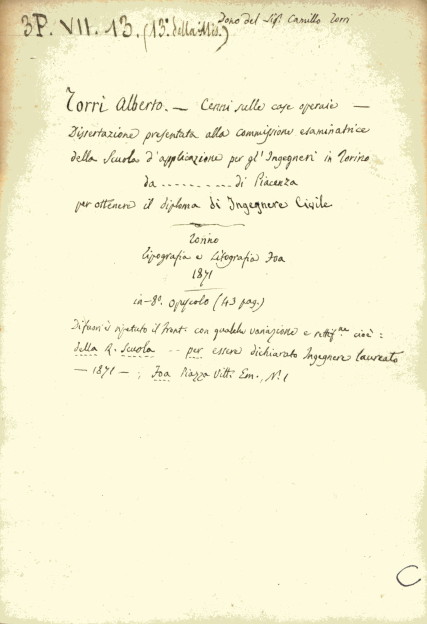 3P. VII. 13. (13ª della Mis.)
Dono del Sigr Camillo Torri
Torri Alberto. — Cenni sulle case operaie —
Dissertazione presentata alla commissione esaminatrice
della Scuola d'applicazione per gl'Ingegneri in Torino
da .......... di Piacenza
per ottenere il diploma di Ingegnere Civile
Torino
tipografia e Litografia Foa
1871
in-8º. opuscolo (43 pag.)
Difuori è ripetuto il front. con qualche variazione e rettifne cioè:
della R. Scuola .. per essere dichiarato Ingegnere laureato
— 1871 — ; Foa Piazza Vitt. Em., N. 1
C